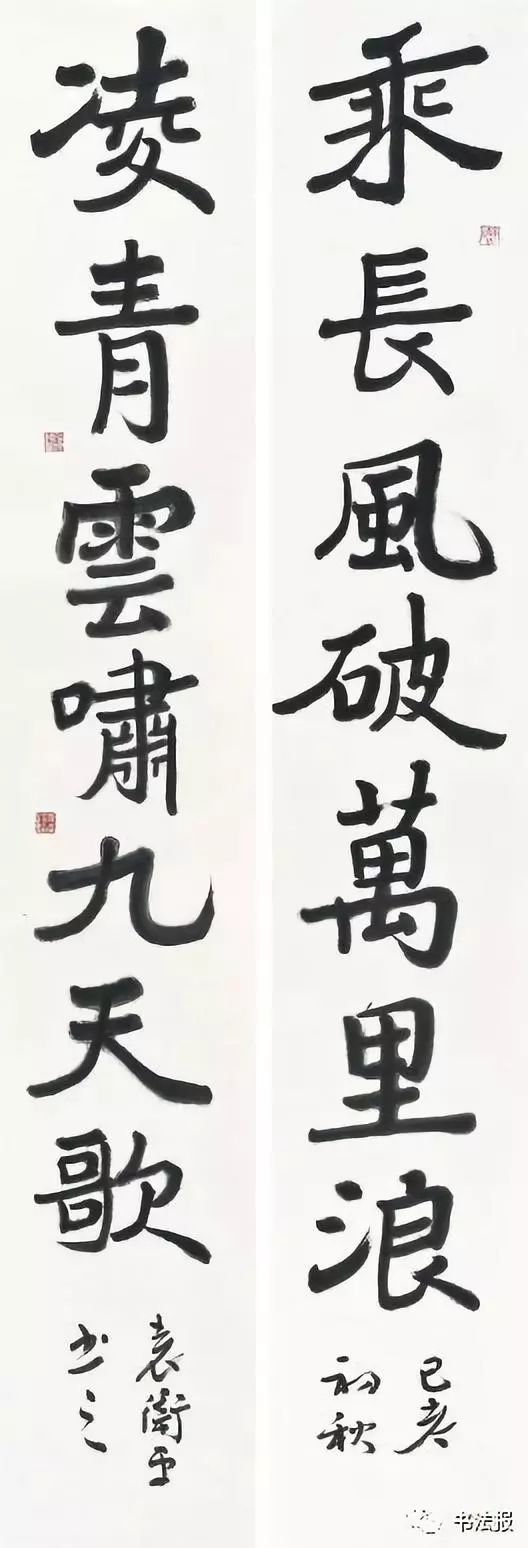 乘長風破萬里浪
己亥
初秋
凌青雲嘯九天歌
袁衛平
书之
书法报